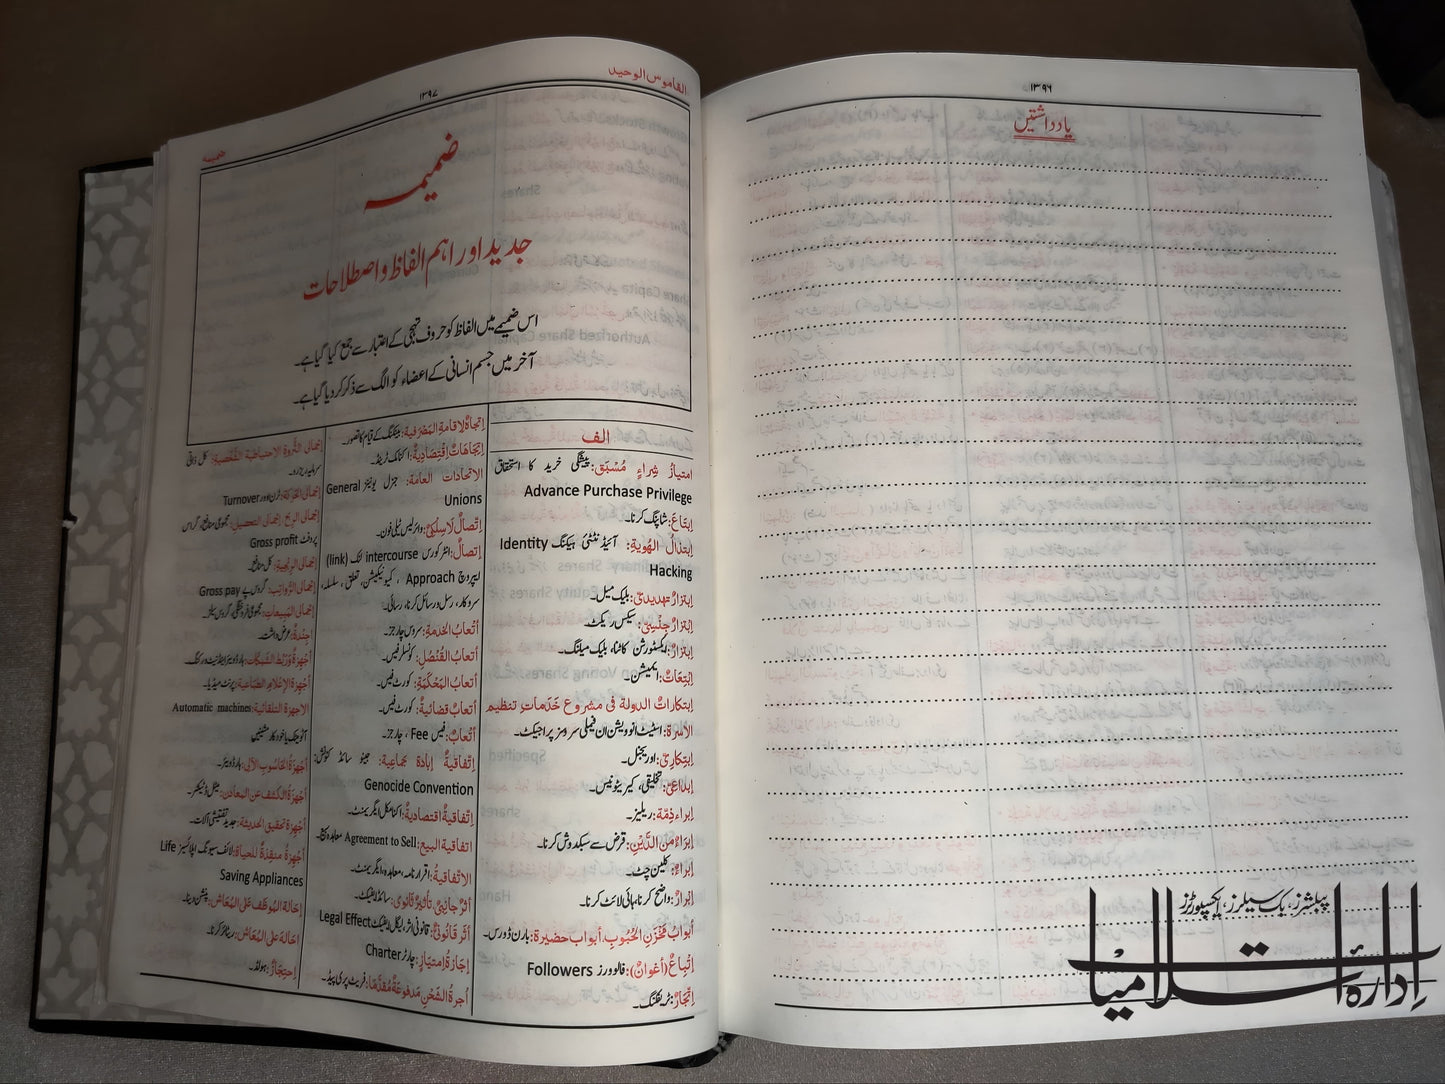 ۱۳۹۶
یادداشتیں
القاموس الوحید
۱۳۹۷
ضمیمہ
ضمیمہ
جدید اور اہم الفاظ و اصطلاحات
اس ضمیمے میں الفاظ کو حروف تہجی کے اعتبار سے جمع کیا گیا ہے۔
آخر میں جسم انسانی کے اعضاء کو الگ سے ذکر کر دیا گیا ہے۔
الف
امتیازُ شِراءٍ مُسْبَق: پیشگی خرید کا استحقاق
Advance Purchase Privilege
اِبتَاعَ: شاپنگ کرنا۔
اِبتذالُ الهُوِيةِ: آئیڈنٹٹی ہیکنگ Identity
Hacking
اِبتزازٌ تهديديٌ: بلیک میل۔
اِبْتزازٌ جنْسِیٌ: سیکس ریکٹ۔
اِبتزازٌ: ایکسٹورشن کاٹنا، بلیک میلنگ۔
اِبْتِعَاثٌ: ایمیشن۔
اِبتكاراتُ الدولة فی مشروع خَدَماتِ تنظیم
الأسرة: اسٹیٹ انوویشن ان فیملی سروسز پراجیکٹ۔
اِبتِكارِيٌ: اوریجنل۔
اِبداعیٌ: تخلیقی، کیریٹونیس۔
اِبراءُ ذِمّة: ریلیز۔
اِبْرَاءٌ مِن الدَّيْنِ: قرض سے سبکدوش کرنا۔
اِبْرَاءٌ: کلین چٹ۔
اِبْرَازٌ: واضح کرنا، ہائی لائٹ کرنا۔
أبوابُ مَخْزَنِ الحُبُوبِ، أبواب حضيرة: بارن ڈورس۔
اِتْبَاعٌ (أعْوانٌ): فالوورز Followers
اِتِّجارٌ: ٹریفکنگ۔
اِتجاهٌ لاقامةِ المَصْرَفية: بینکنگ کے قیام کا تصور۔
اِتِّجاهَاتٌ اِقتِصَادِيةٌ: اکنامک ٹرینڈ۔
الاتحادات العامة: جنرل یونینز General
Unions
اِتّصالٌ لَاسِلْكِيٌ: وائرلیس ٹیلی فون۔
اِتصالٌ: انٹر کورس intercourse لنک (link)
اپروچ Approach ، کمیونیکیشن، تعلق، سلسلہ،
سروکار، رسل و رسائل کرنا، رسائی۔
أتعابُ الخدمةِ: سروس چارجز۔
أتعابُ القُنْصُلِ: کونسلر فیس۔
أتعابُ المَحْكَمَةِ: کورٹ فیس۔
أتعابٌ قضائيةٌ: کورٹ فیس۔
أتْعابٌ: فیس Fee ، چارجز۔
اِتفاقيةُ إبادة جماعية: جینو سائڈ کنونشن:
Genocide Convention
اِتّفاقيةٌ اقتصاديةٌ: اکنامکل ایگریمنٹ۔
اتفاقية البيع: Agreement to Sell معاہدہ بیع۔
الاتفاقيةُ: اقرار نامہ، معاہدہ، ایگریمنٹ۔
أثرٌ جانِبِيٌ، تأثيرٌ ثانوی: سائڈ ایفیکٹ۔
أثَر قَانُونِيٌ: قانونی اثر، لیگل ایفیکٹ Legal Effect
إجازةُ امتيازٍ: چارٹر Charter
أجرةُ الشَحْنِ مَدفوعةٌ مُقَدَّمًا: فریٹ پری پیڈ۔
اِجمالى الثَّروة الاحتياطية الشَّخصيةِ: کل ذاتی
اِجمالی الحَرَكة: ٹرن اوور Turnover
اِجمالى الربح، اِجمالى التحصيل: مجموعی منافع، گراس
پروفٹ Gross profit
اِجمالى الربحية: کل منافع۔
اِجمالى الرَّواتِب: گروس پے Gross pay
اِجمالى المَبِيعات: مجموعی فروختگی، گروس سیلز۔
أجِندةٌ: عرض داشت۔
أجهِزةُ وَرَبْط الشبكات: ہارڈویئر اینڈ نیٹ ورکنگ۔
أجهِزة الإعلام الطِّبَاعية: پرنٹ میڈیا۔
الاجهزة التلقائية: Automatic machines
آٹومیٹک یا خودکار مشینیں
أجهِزةُ الحَاسُوبِ الآلى: ہارڈویئر۔
أجهزةُ الكشف عن المعادِن: میٹل ڈیٹیکٹر۔
أجهزة تحقيق الحديثة: جدید تفتیشی آلات۔
أجهزةٌ منقِذةٌ للحياة: لائف سیونگ اپلائنسیز Life
Saving Appliances
إحالة المُوَظَف على المُعَاش: پنشن دینا۔
إحالة على المُعَاش: ریٹائر کرنا۔
اِحتِجَازٌ: ہولڈ۔
پبلشرز، بک سیلرز، ایکسپورٹرز
ادارہ اسلامیات